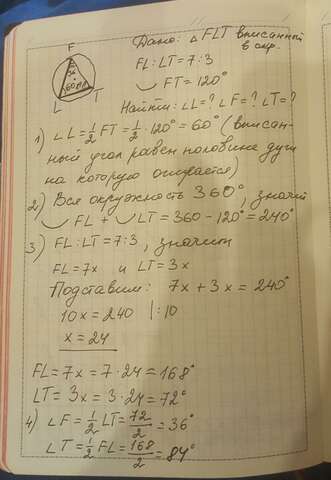 Дано: △ FLT вписанный
в окр.
F
FL:LT=7:3
36
◡ FT=120°
60°
L
T
Найти: ∠L=? ∠F=? ∠T=?
1) ∠L=½ FT=½·120°=60° (вписан-
ный угол равен половине дуги
на которую опирается)
2) Вся окружность 360°, значит
◡ FL + ◡ LT = 360 - 120° = 240°
3) FL:LT=7:3, значит
FL=7x и LT=3x
Подставим: 7x+3x=240°
10x=240 |:10
x=24
FL=7x=7·24=168°
LT=3x=3·24=72°
4) ∠F=½LT=72/2=36°
∠T=½FL=168/2=84°